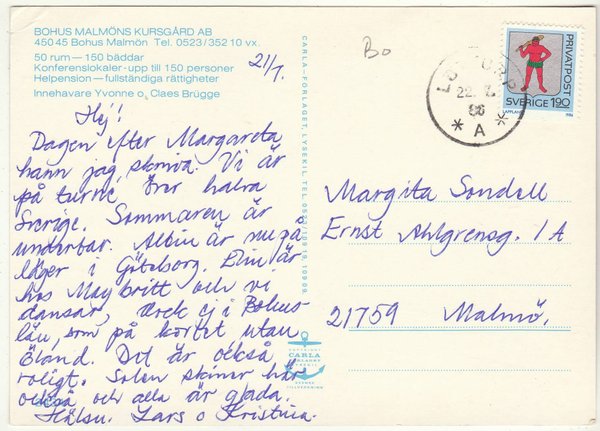 BOHUS MALMÖNS KURSGÅRD AB
450 45 Bohus Malmön Tel. 0523/352 10 vx.
50 rum — 150 bäddar
Konferenslokaler · upp till 150 personer
Helpension — fullständiga rättigheter
Innehavare Yvonne o. Claes Brügge
21/7.
Hej!
Dagen efter Margareta
hann jag skriva. Vi är
på turné över halva
Sverige. Sommaren är
underbar. Albin är nu på
läger i Göteborg. Elin är
hos Maybritt och vi
dansar, dock ej i Bohus-
län, som på kortet utan
Öland. Det är också
roligt. Solen skiner här
också och alla är glada.
Hälsn. Lars o Kristina.
CARLA-FÖRLAGET, LYSEKIL, TEL.
CARLA
FÖRLAGET
LYSEKIL
SVENSK
TILLVERKNING
Bo
22. 7.
86
* A *
PRIVATPOST
SVERIGE 190
LAPPLAND
Margita Sondell
Ernst Ahlgrensg. 1A
21759 Malmö.